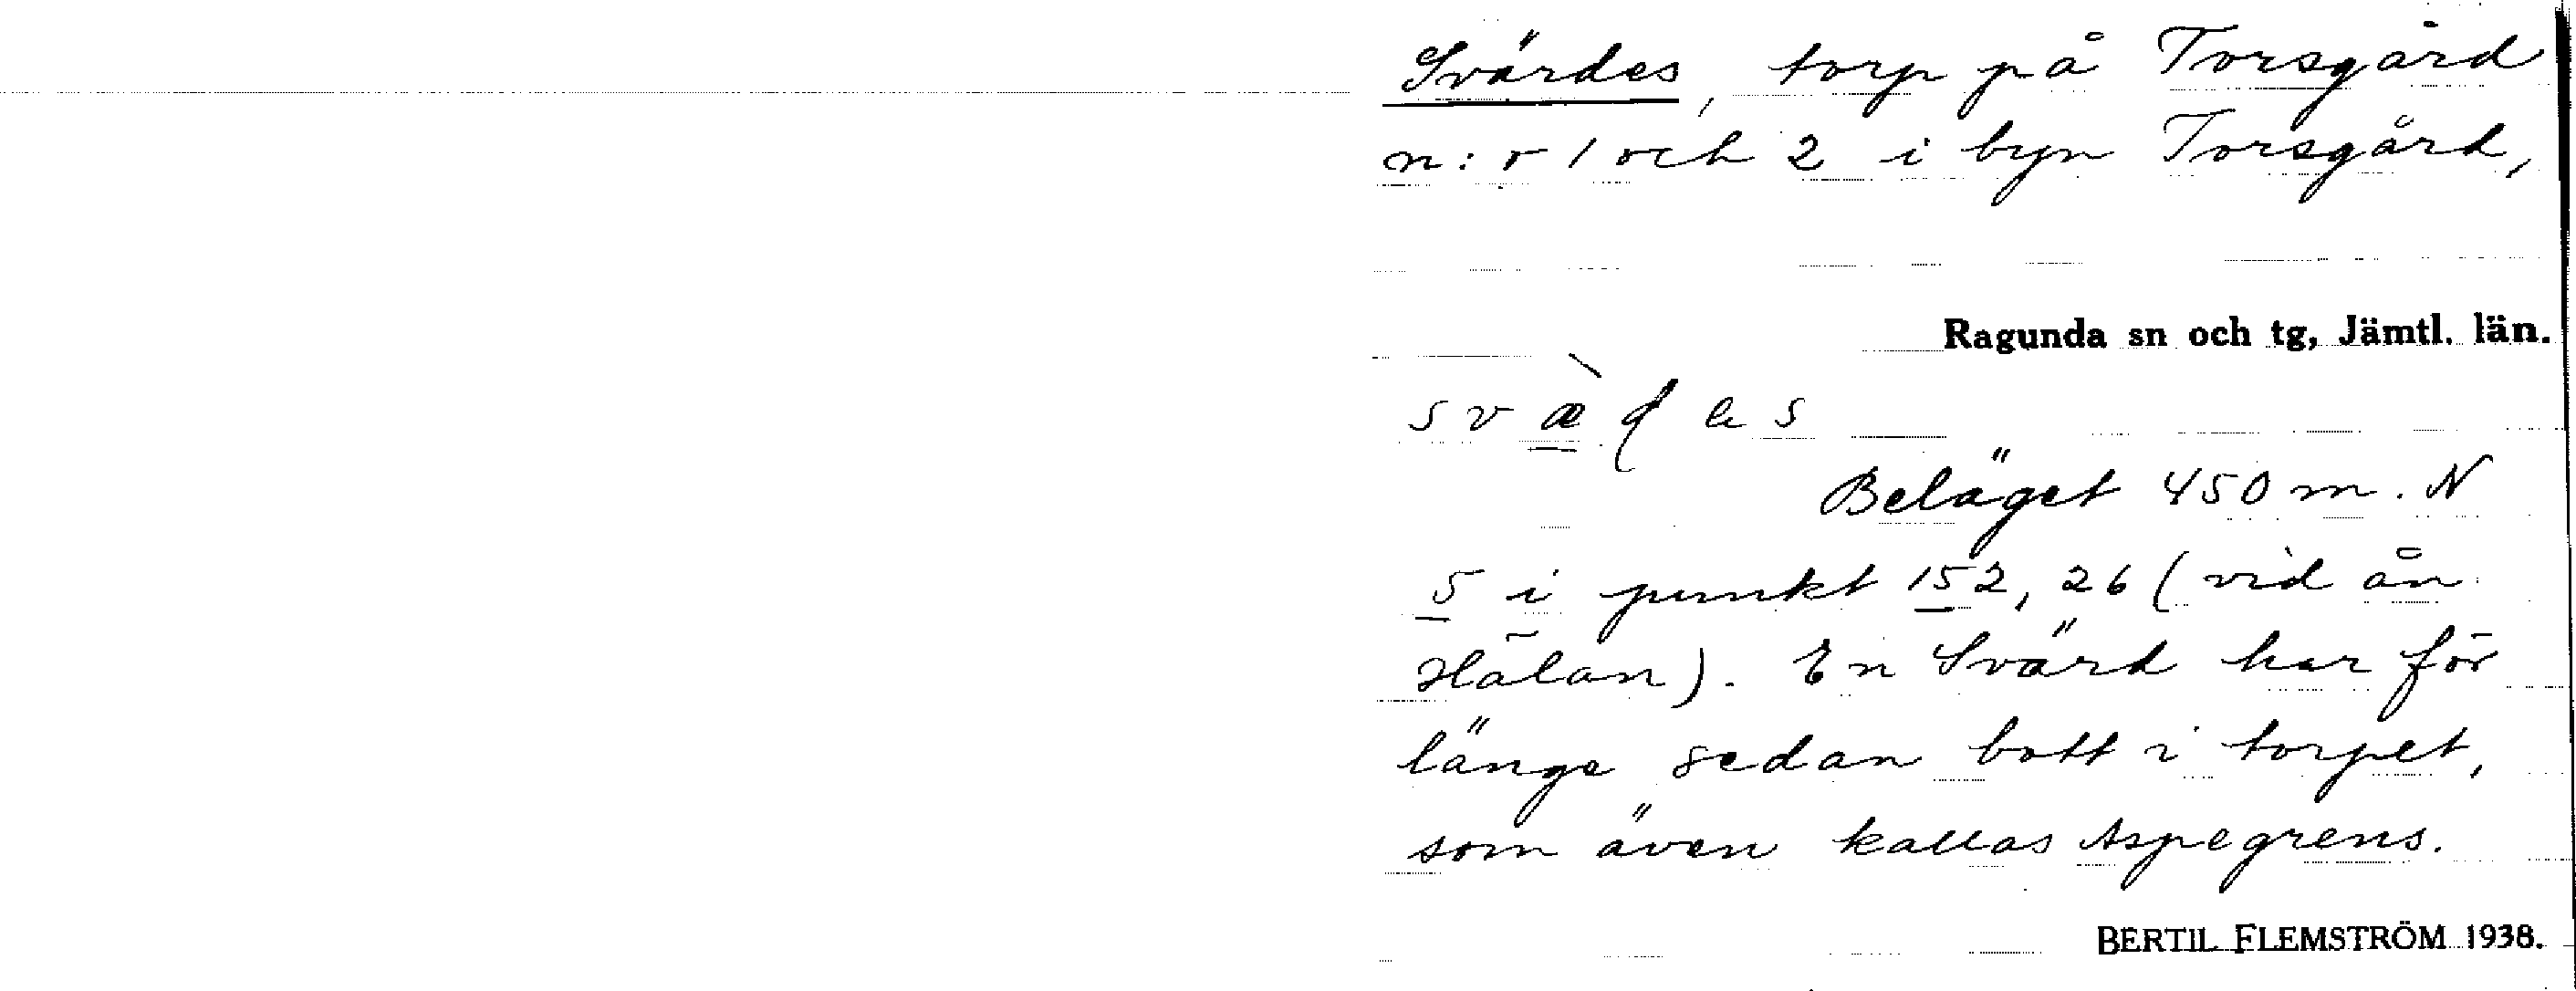 Svärdes, torp på Torsgård
n:r 1 och 2 i byn Torsgård,
Ragunda sn och tg, Jämtl. län.
Beläget 450 m. N
5 i punkt 152,26 (vid ån
Hälan). En Svärd har för
länge sedan bott i torpet,
som även kallas Aspegrens.
BERTIL FLEMSTRÖM 1938.